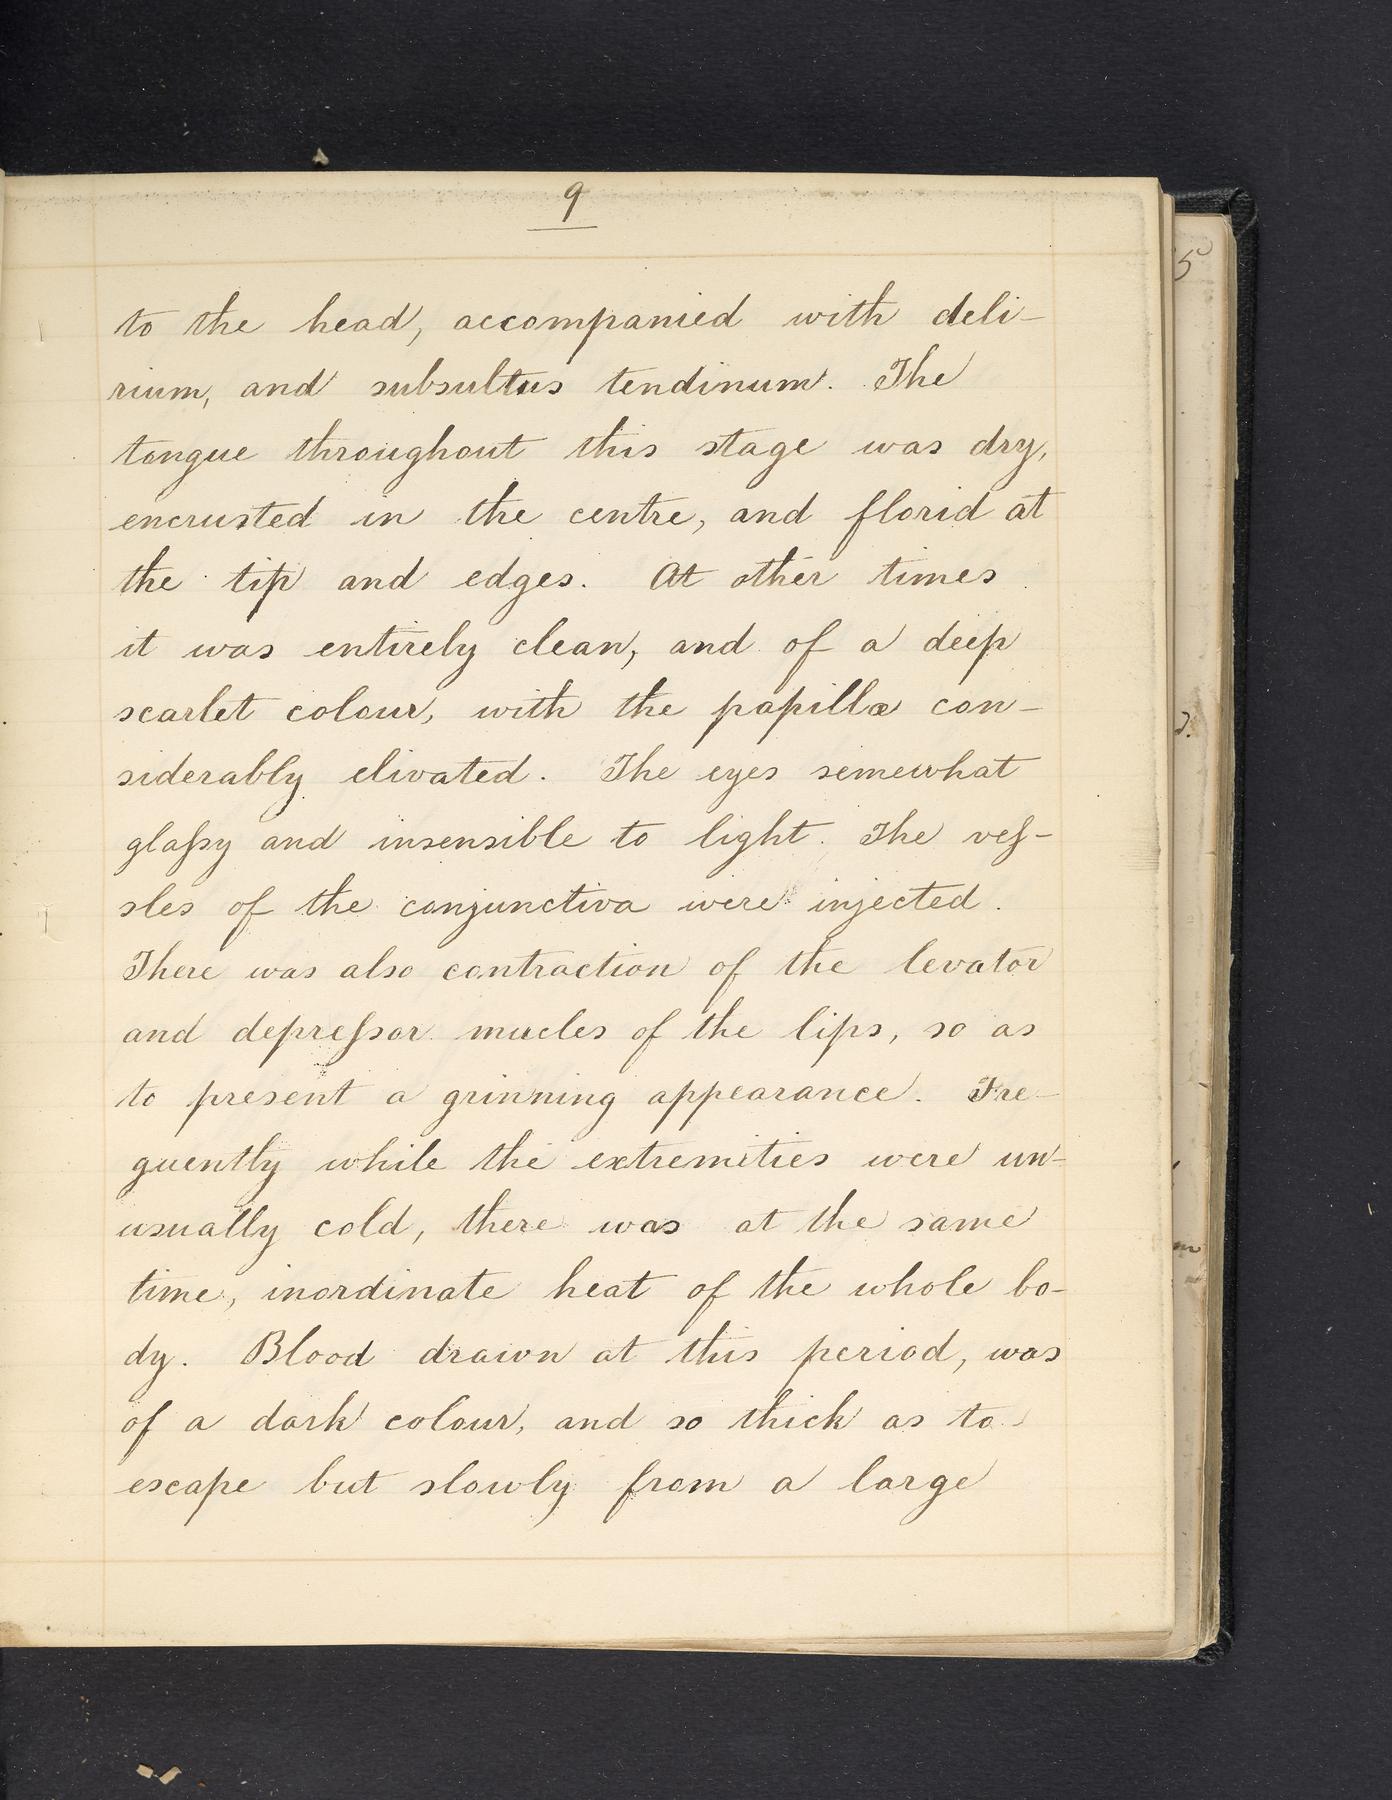 9
to the head, accompanied with deli-
rium, and subsultus tendinum. The
tongue throughout this stage was dry,
encrusted in the centre, and florid at
the tip and edges. At other times
it was entirely clean, and of a deep
scarlet colour, with the papillæ con-
siderably elivated. The eyes semewhat
glaſsy and insensible to light. The veſ-
sles of the conjunctiva were injected.
There was also contraction of the levator
and depreſsor mucles of the lips, so as
to present a grinning appearance. Fre-
quently while the extremities were un-
usually cold, there was at the same
time, inordinate heat of the whole bo-
dy. Blood drawn at this period, was
of a dark colour, and so thick as to
escape but slowly from a large
5